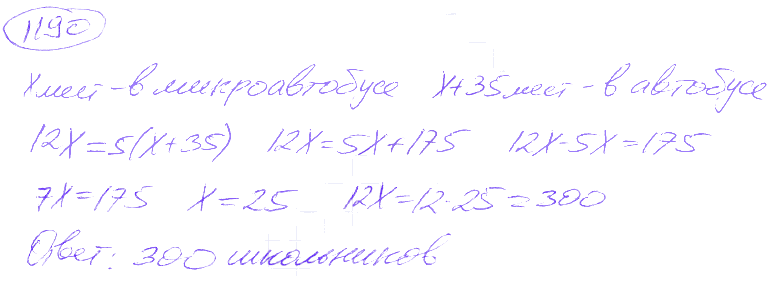 1190
x мест - в микроавтобусе x+35 мест - в автобусе
12x=5(x+35) 12x=5x+175 12x-5x=175
7x=175 x=25 12x=12·25=300
Ответ: 300 школьников